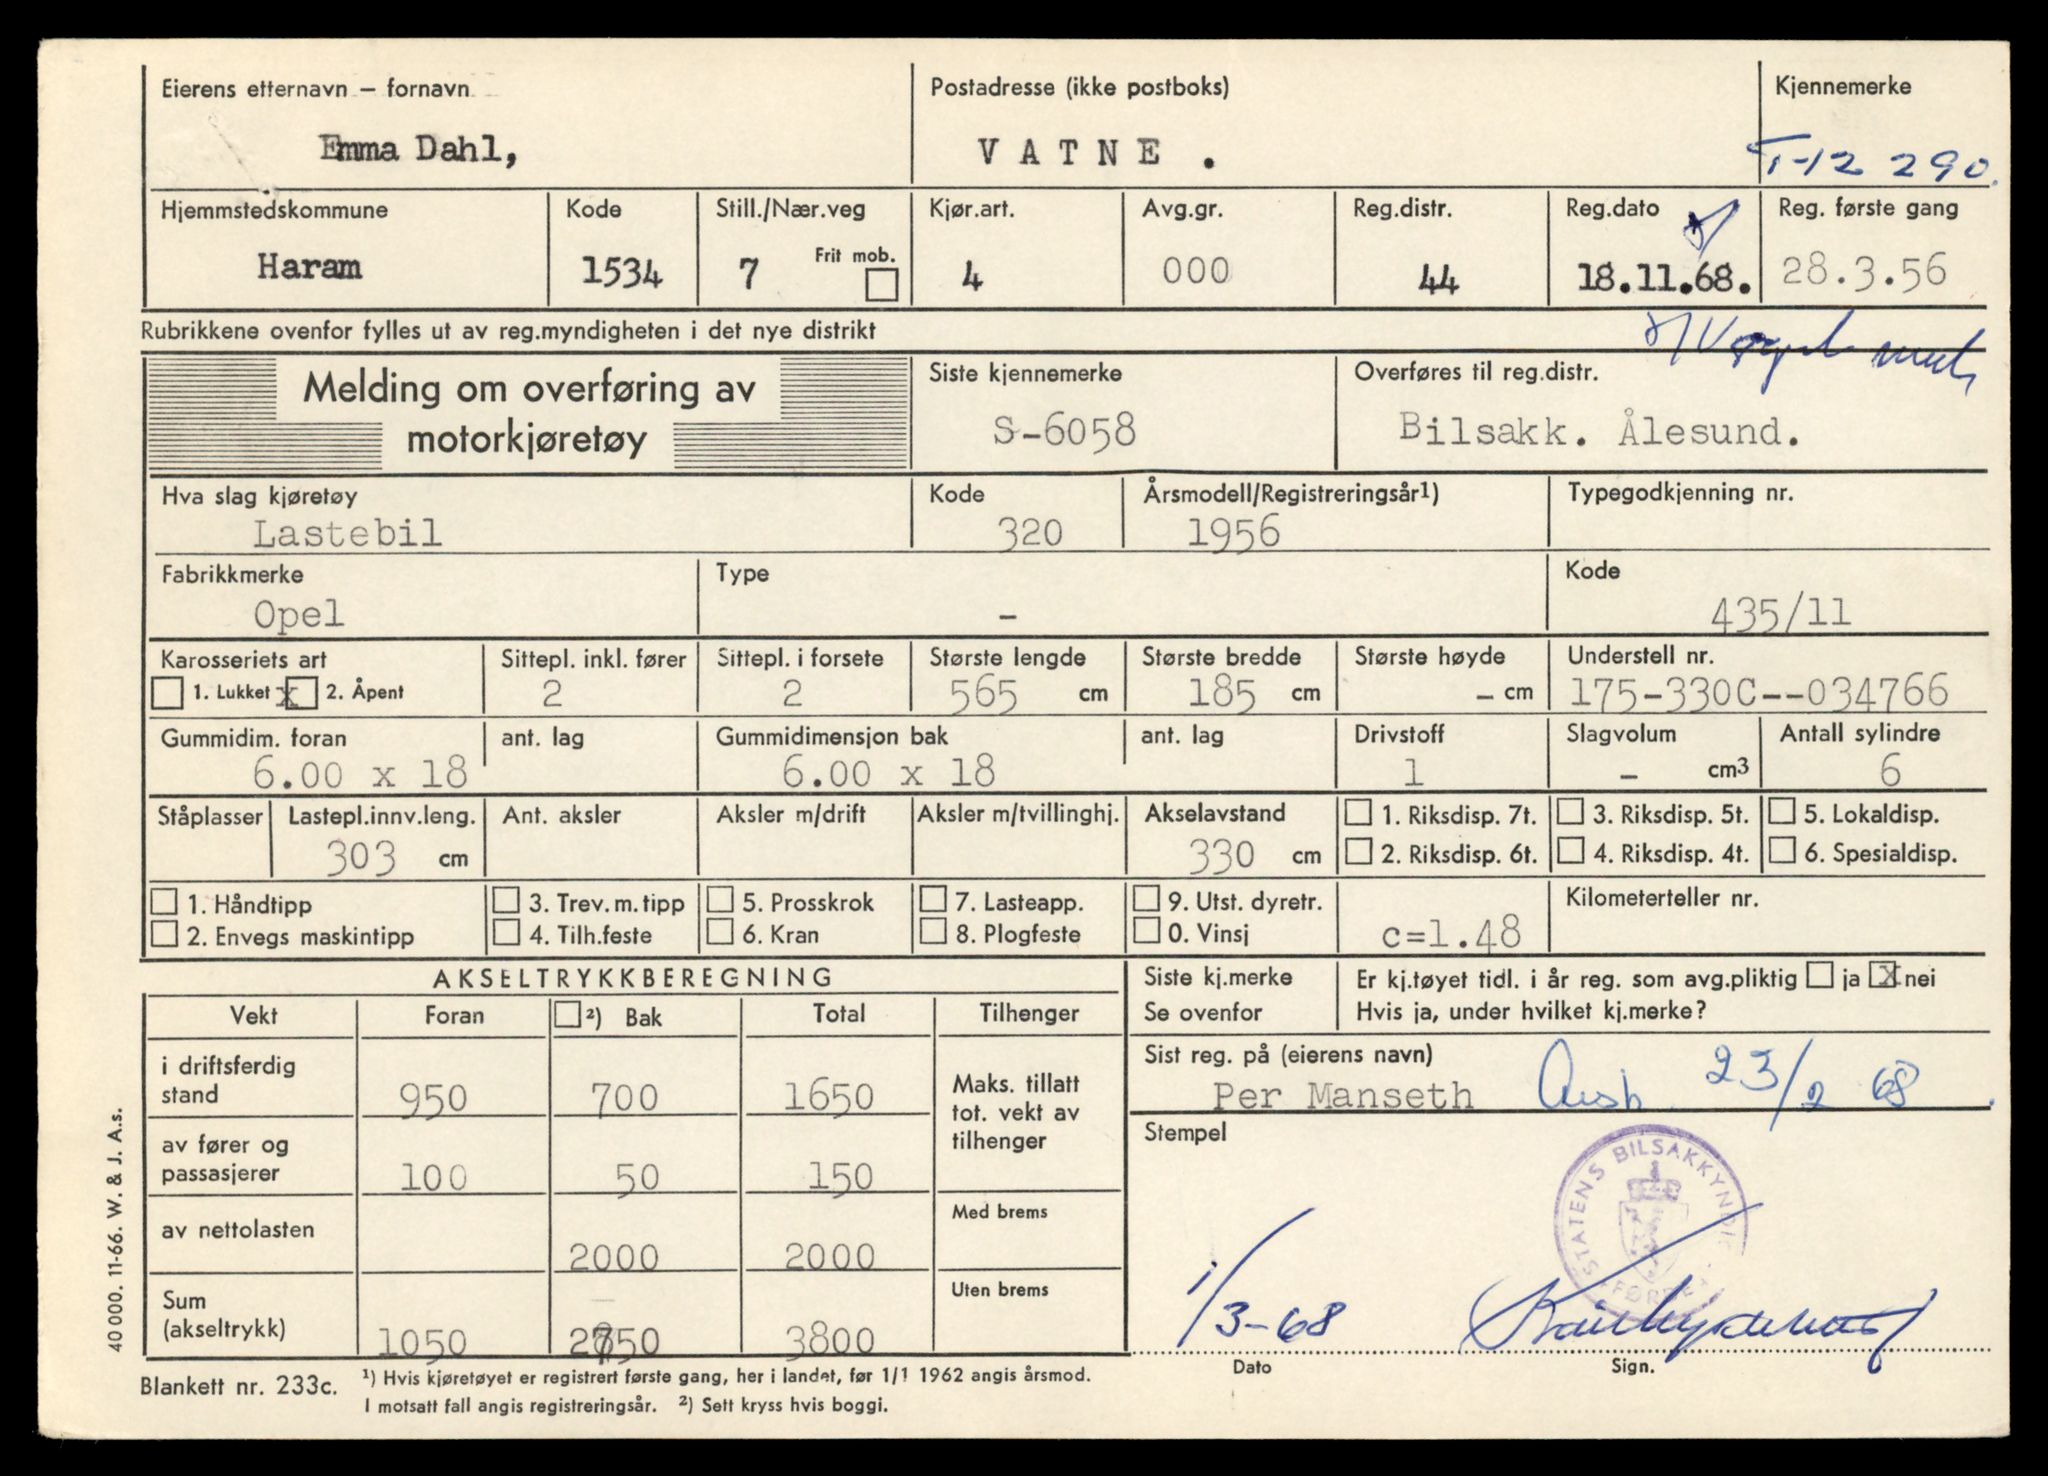 Eierens etternavn – fornavn Postadresse (ikke postboks) Kjennemerke
Emma Dahl, VATNE . T-12 290.
Hjemmstedskommune Kode Still./Nær.veg Kjør.art. Avg.gr. Reg.distr. Reg.dato Reg. første gang
Haram 1534 7 Frit mob. 4 000 44 18.11.68. 28.3.56
Rubrikkene ovenfor fylles ut av reg.myndigheten i det nye distrikt
Melding om overføring av motorkjøretøy
Siste kjennemerke Overføres til reg.distr.
S-6058 Bilsakk. Ålesund.
Hva slag kjøretøy Kode Årsmodell/Registreringsår1) Typegodkjenning nr.
Lastebil 320 1956
Fabrikkmerke Type Kode
Opel - 435/11
Karosseriets art Sittepl. inkl. fører Sittepl. i forsete Største lengde Største bredde Største høyde Understell nr.
1. Lukket x 2. Åpent 2 2 565 cm 185 cm - cm 175-330C--034766
Gummidim. foran ant. lag Gummidimensjon bak ant. lag Drivstoff Slagvolum Antall sylindre
6.00 x 18 6.00 x 18 1 - cm3 6
Ståplasser Lastepl.innv.leng. Ant. aksler Aksler m/drift Aksler m/tvillinghj. Akselavstand 1. Riksdisp. 7t. 3. Riksdisp. 5t. 5. Lokaldisp.
303 cm 330 cm 2. Riksdisp. 6t. 4. Riksdisp. 4t. 6. Spesialdisp.
1. Håndtipp 3. Trev. m. tipp 5. Prosskrok 7. Lasteapp. 9. Utst. dyretr. Kilometerteller nr.
2. Envegs maskintipp 4. Tilh.feste 6. Kran 8. Plogfeste 0. Vinsj c=1.48
AKSELTRYKKBEREGNING Siste kj.merke Er kj.tøyet tidl. i år reg. som avg.pliktig ja x nei
Vekt Foran 2) Bak Total Tilhenger Se ovenfor Hvis ja, under hvilket kj.merke?
i driftsferdig stand 950 700 1650 Maks. tillatt tot. vekt av tilhenger
Sist reg. på (eierens navn)
Per Manseth 23/2 68.
av fører og passasjerer 100 50 150
Stempel
STATENS BILSAKKYNDIG
FØRDE
av nettolasten 2000 2000 Med brems
Sum (akseltrykk) 1050 2750 3800 Uten brems
1/3-68
Dato Sign.
Blankett nr. 233c. 1) Hvis kjøretøyet er registrert første gang, her i landet, før 1/1 1962 angis årsmod.
I motsatt fall angis registreringsår. 2) Sett kryss hvis boggi.
40 000. 11-66. W. & J. A.s.